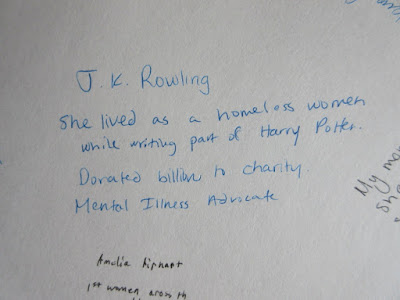 J.K. Rowling
She lived as a homeless women
while writing part of Harry Potter.
Donated billion to charity.
Mental Illness Advocate
My mom
she
Amelia Airhart
1st women across th